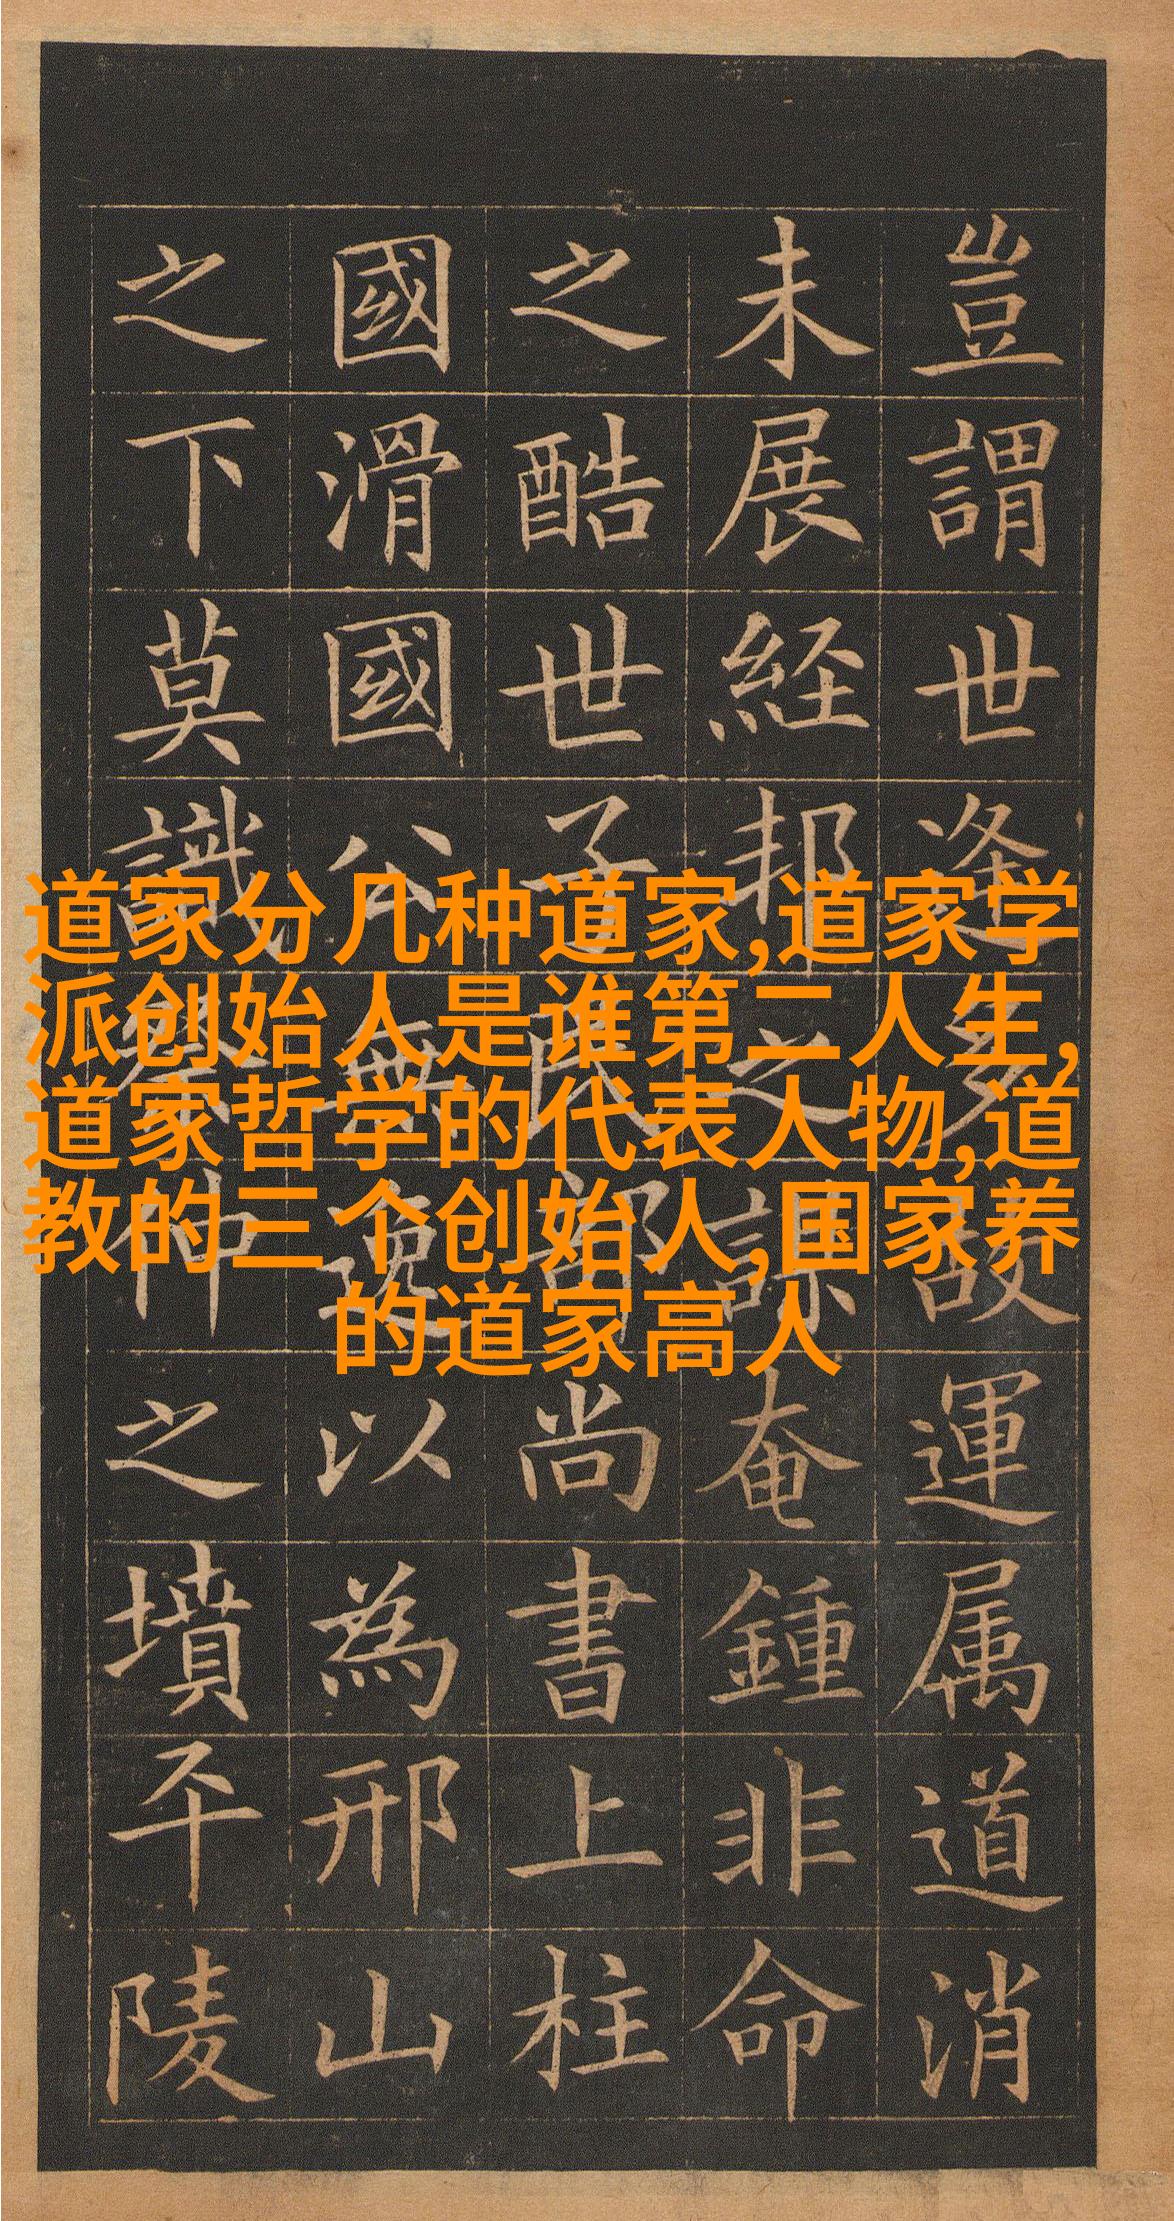 道家分几种道家,道家学
派创始人是谁第二人生,
道家哲学的代表人物,道
教的三个创始人,国家养
的道家高人
豈謂世逢多故運属道消
未展経邦之謀奄鍾非命
之酷世子民部尚書上柱
國滑國公無逸以為邢山
之下莫識祭仲之墳平陵